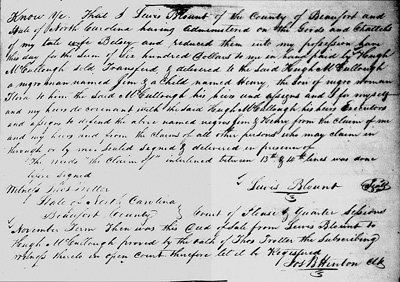 Know Ye. That I Lewis Blount of the County of Beaufort and
State of North Carolina having administered on the Goods and Chattels
of my late wife Betsey and reduced them into my possession have
this day for the Sum of five hundred Dollars to me in hand paid by Hugh
McCullough sold Transferred & delivered to the Said Hugh McCullough
a negro man named Jim & a Child named Henry the Son of negro Woman
to him the Said McCullough his heirs and assigns and I for myself
and my heirs do covenant with the Said Hugh McCullough his heirs Executors
and assigns to defend the above named negroes Jim & Henry from the claim of me
and my heirs and from the claims of all other persons who may claim in
through or by me. Sealed Signed & delivered in presence of
The words "the Claim of" interlined between 13th & 14th lines was done
before signed
Witness Thos Trotter
Lewis Blount Seal
State of North Carolina
Beaufort County Court of Pleas & Quarter Sessions
November Term Then was this Deed of Sale from Lewis Blount to
Hugh McCullough proved by the oath of Thos Trotter the Subscribing
witness thereto in open Court therefore let it be Registered
Jos B Hinton Clk